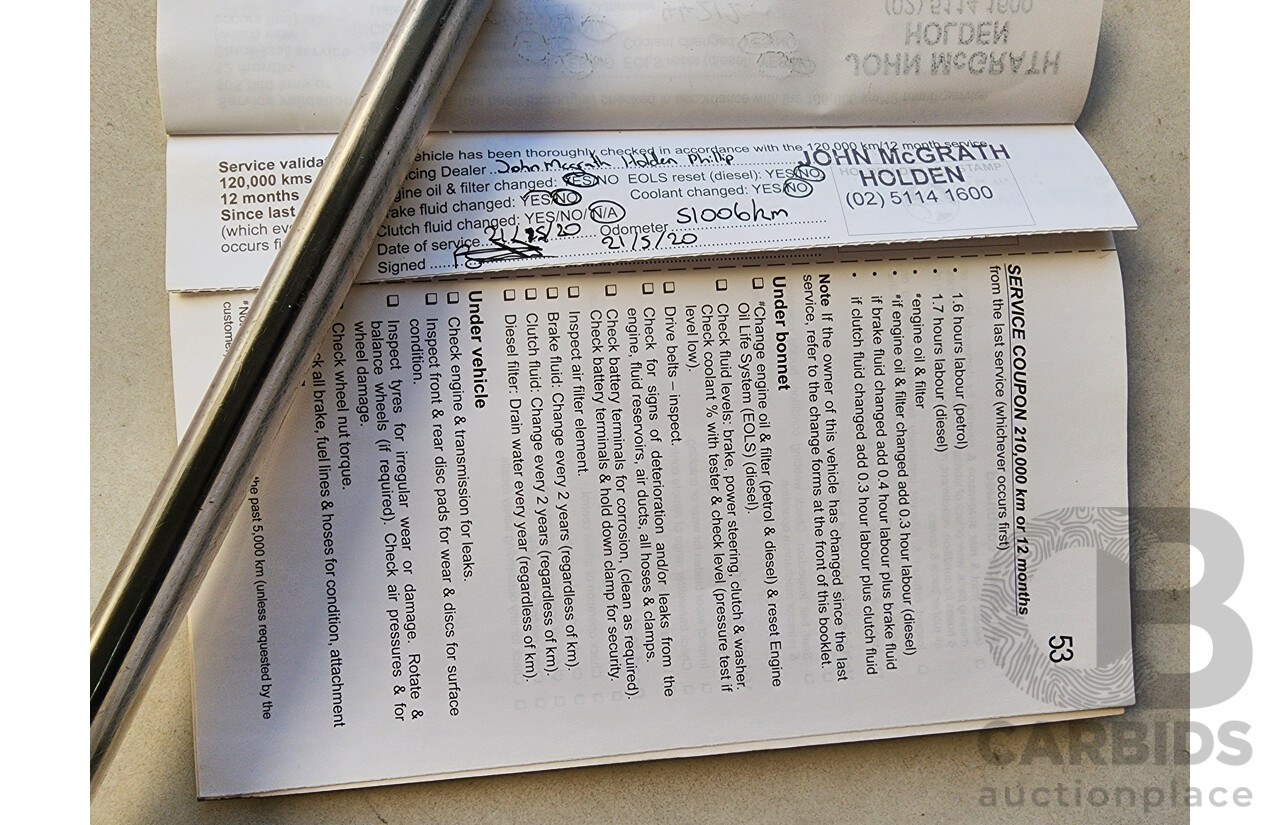 (02) 5114 1600
HOLDEN
JOHN McGRATH
Service valida
120,000 kms
12 months
Since last
(which eve
occurs fi
ehicle has been thoroughly checked in accordance with the 120,000 km/12 month service
cing Dealer John Mcgrath Holden Phillip
gine oil & filter changed: YES/NO EOLS reset (diesel): YES/NO
ake fluid changed: YES/NO Coolant changed: YES/NO
Clutch fluid changed: YES/NO/N/A
Date of service 21/5/20 Odometer 51006km
Signed 21/5/20
JOHN McGRATH
HOLDEN
(02) 5114 1600
SERVICE COUPON 210,000 km or 12 months
from the last service (whichever occurs first)
53
• 1.6 hours labour (petrol)
• 1.7 hours labour (diesel)
*engine oil & filter
• *if engine oil & filter changed add 0.3 hour labour (diesel)
• if brake fluid changed add 0.4 hour labour plus brake fluid
• if clutch fluid changed add 0.3 hour labour plus clutch fluid
Note If the owner of this vehicle has changed since the last
service, refer to the change forms at the front of this booklet.
Under bonnet
❑ *Change engine oil & filter (petrol & diesel) & reset Engine
Oil Life System (EOLS) (diesel).
❑ Check fluid levels: brake, power steering, clutch & washer.
Check coolant % with tester & check level (pressure test if
level low).
❑ Drive belts – inspect.
❑ Check for signs of deterioration and/or leaks from the
engine, fluid reservoirs, air ducts, all hoses & clamps.
❑ Check battery terminals for corrosion, (clean as required).
Check battery terminals & hold down clamp for security.
❑ Inspect air filter element.
❑ Brake fluid: Change every 2 years (regardless of km).
❑ Clutch fluid: Change every 2 years (regardless of km).
❑ Diesel filter: Drain water every year (regardless of km).
Under vehicle
❑ Check engine & transmission for leaks.
❑ Inspect front & rear disc pads for wear & discs for surface
condition.
❑ Inspect tyres for irregular wear or damage. Rotate &
balance wheels (if required). Check air pressures & for
wheel damage.
Check wheel nut torque.
ck all brake, fuel lines & hoses for condition, attachment
*No
he past 5,000 km (unless requested by the
custome
CARBIDS
auctionplace